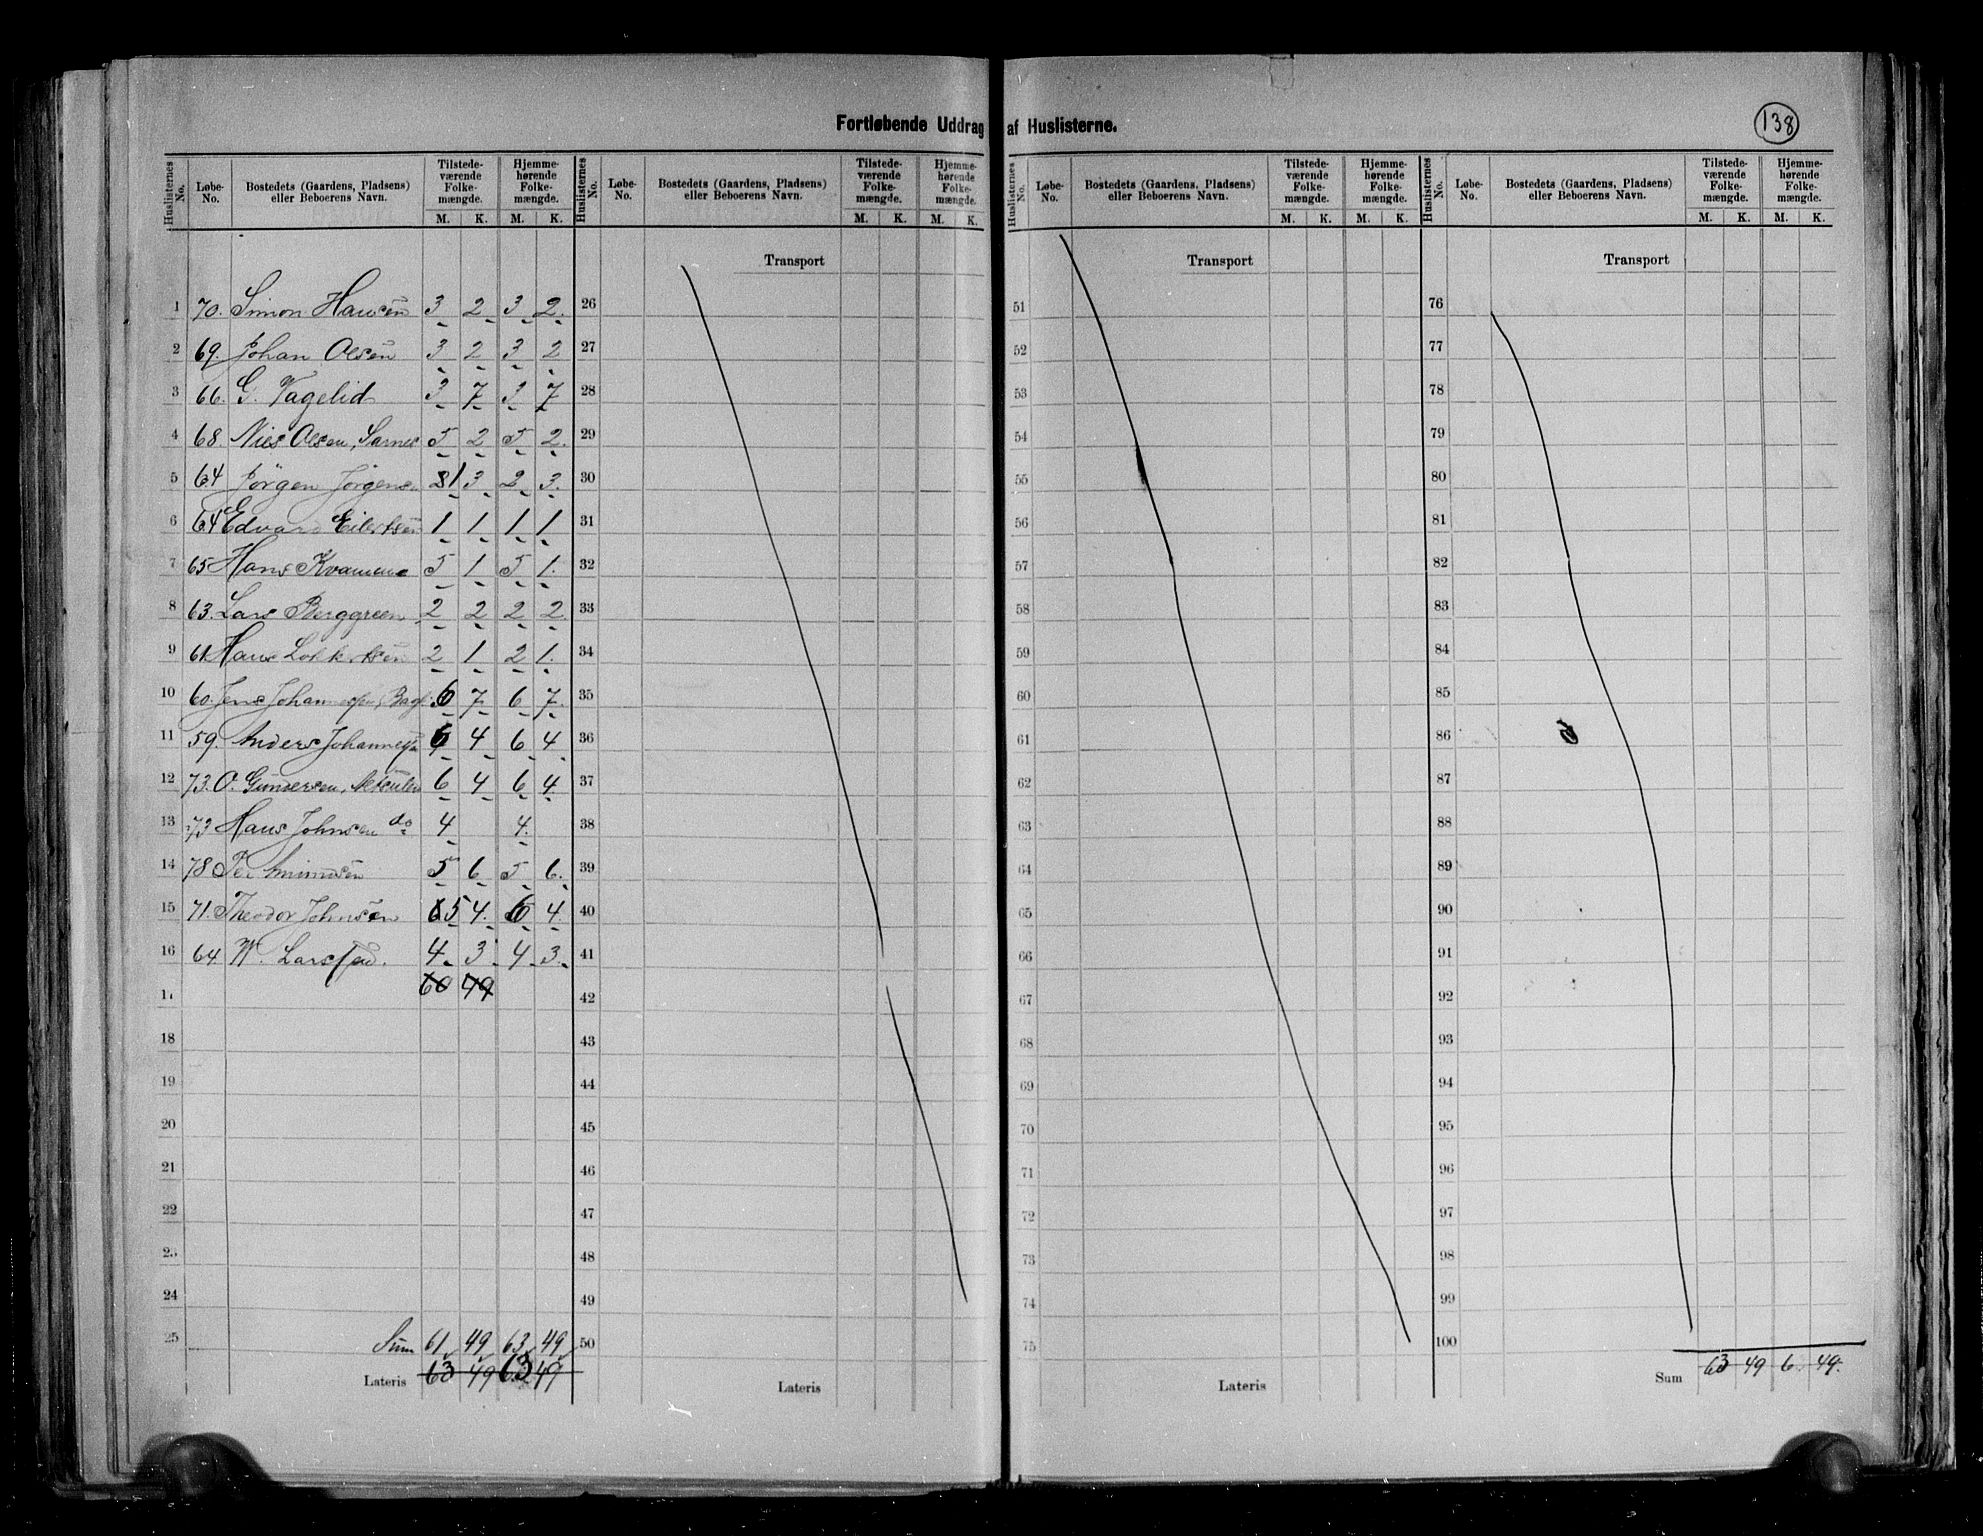 Fortløbende Uddrag af Huslisterne.
138
Huslisternes No. Løbe-No. Bostedets (Gaardens, Pladsens) eller Beboerens Navn. Tilstedeværende Folkemængde. M. K. Hjemmehørende Folkemængde. M. K.
Huslisternes No. Løbe-No. Bostedets (Gaardens, Pladsens) eller Beboerens Navn. Tilstedeværende Folkemængde. M. K. Hjemmehørende Folkemængde. M. K.
Huslisternes No. Løbe-No. Bostedets (Gaardens, Pladsens) eller Beboerens Navn. Tilstedeværende Folkemængde. M. K. Hjemmehørende Folkemængde. M. K.
Huslisternes No. Løbe-No. Bostedets (Gaardens, Pladsens) eller Beboerens Navn. Tilstedeværende Folkemængde. M. K. Hjemmehørende Folkemængde. M. K.
Transport Transport Transport
1 70. Simon Hansen 3 2 3 2. 26 51 76
2 69. Johan Olsen 3 2 3 2 27 52 77
3 66. G. Vagelid 3 7 3 7 28 53 78
4 68. Nies Olsen, Sarnes 5 2 5 2. 29 54 79
5 64 Jörgen Jörgens. 1 3 2 3. 30 55 80
6 64 Edvard Eilertsen 1 1 1 1 31 56 81
7 65 Hans Kvamme 5 1 5 1. 32 57 82
8 63. Lars Berggreen 2 2 2 2 33 58 83
9 61 Hans Lokkertsen 2 1 2 1. 34 59 84
10 60. Jens Johannesen, 6 7 6 7. 35 60 85
11 59. Anders Johannesen 6 4 6 4 36 61 86
12 73. O. Gundersen, 6 4 6 4 37 62 87
13 73 Hans Johnsen do 4 4. 38 63 88
14 78 Per 5 6 5 6. 39 64 89
15 71. Theodor Johnsen 5 4. 6 4. 40 65 90
16 64 W. Larssen. 4 3 4 3. 41 66 91
17 60 49 42 67 92
18 43 68 93
19 44 69 94
20 45 70 95
21 46 71 96
22 47 72 97
23 48 73 98
24 49 74 99
25 Sum 61 49 63 49 50 75 100
Lateris 63 49 63 49 Lateris Lateris Sum 63 49 6. 49.